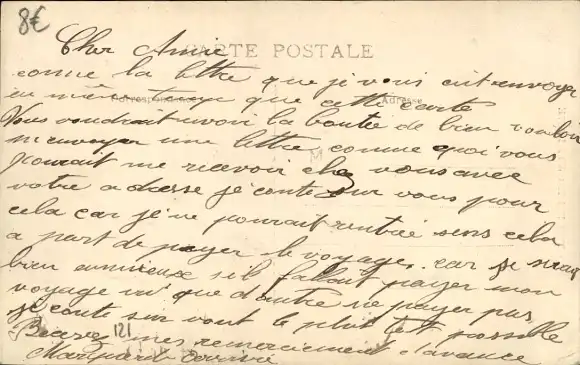 8€
CARTE POSTALE
Correspondance
Adresse
Cher Amie
comme la lettre que je vous ait envoyer
en même temp que cette carte
Vous voudrait avoir la bontée de bien vouloir
m envoyer une lettre comme quoi vous
pourait me recevoir chez vous avec
votre adresse je conte sur vous pour
cela car je ne pourait rentrée sens cela
a part de payer le voyage. car je serait
bien ennuieux s il fallait payer mon
voyage vu que d autre ne payer pas
je conte sur vout le plus tôt possible
Recevez mes remerciement d avance
121